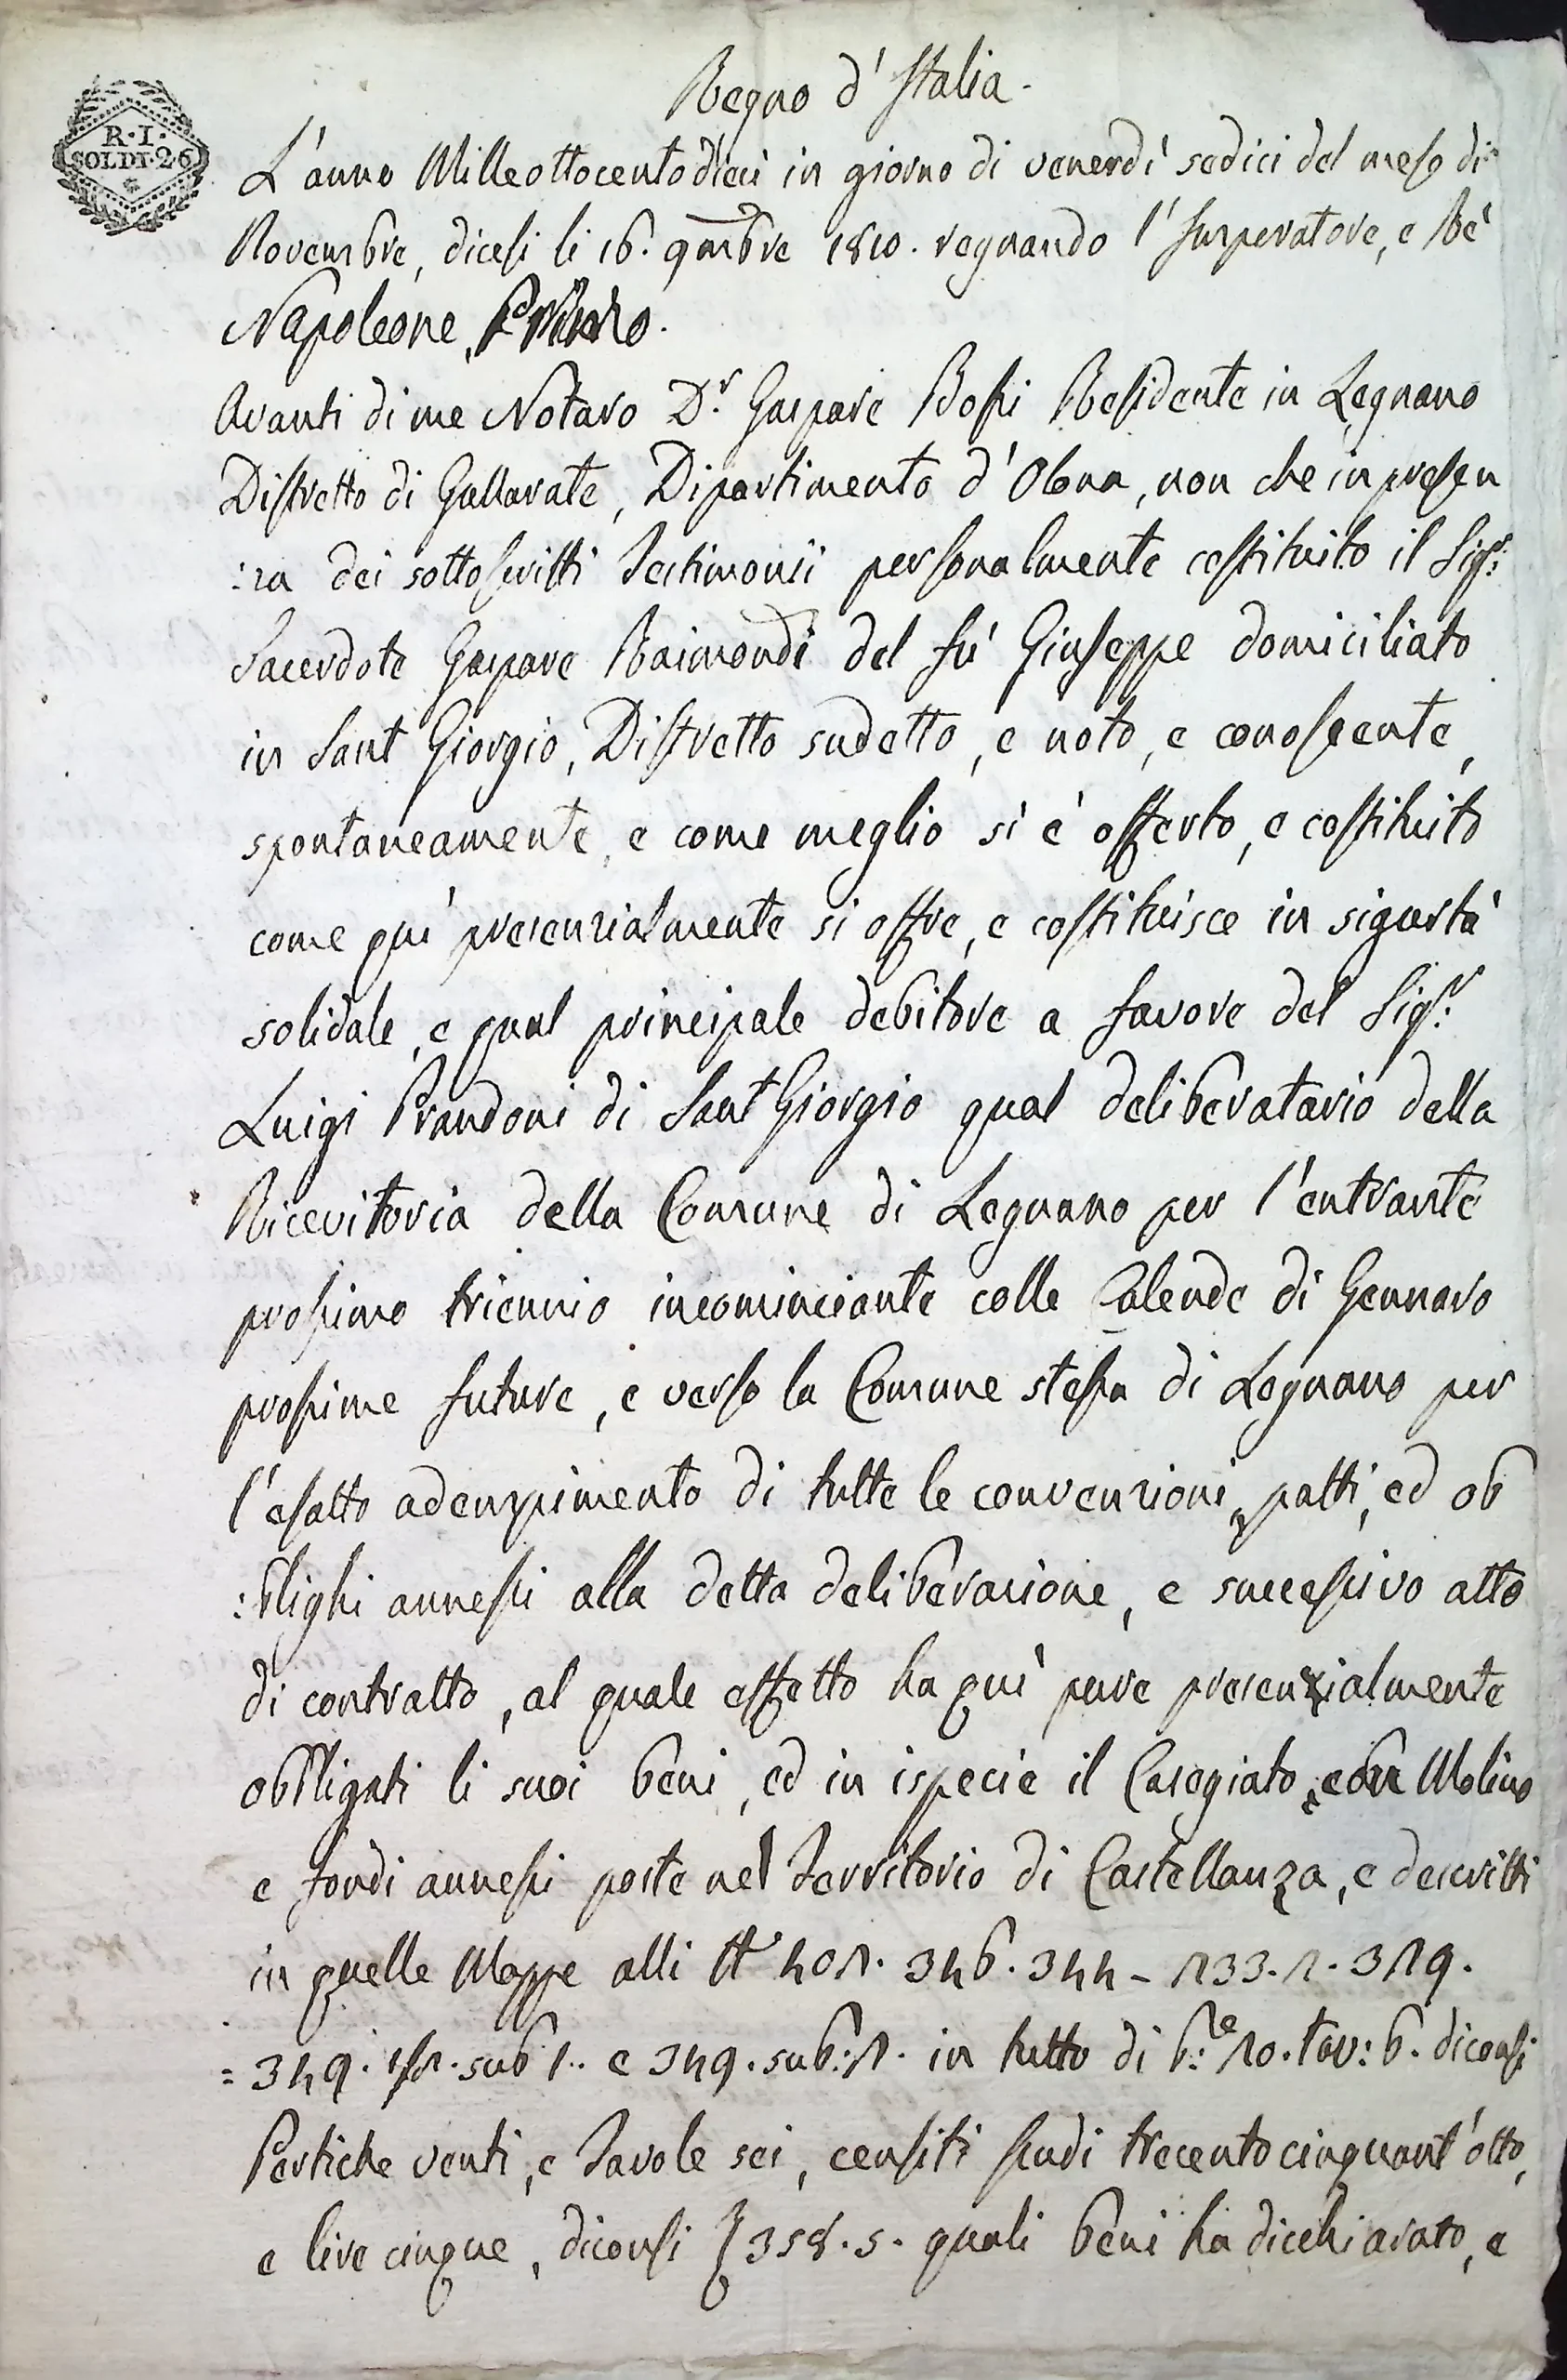 Regno d'Italia.
R. I.
SOLDI. 26
L'anno Milleottocentodieci in giorno di venerdì sedici del mese di
Novembre, dicesi li 16. 9mbre 1810. regnando l'Imperatore, e Rè
Napoleone, Primo.
Avanti di me Notaro D.r Gaspare Bossi Residente in Legnano
Distretto di Gallarate, Dipartimento d'Olona, non che in presen
:za dei sottoscritti Testimonii personalmente costituito il Sig.r
Sacerdote Gaspare Raimondi del fù Giuseppe domiciliato
in Sant Giorgio, Distretto sudetto, e noto, e conoscente,
spontaneamente, e come meglio si è offerto, e costituito
come quì presenzialmente si offre, e costituisce in sigurtà
solidale, e qual principale debitore a favore del Sig.r
Luigi Prandoni di Sant Giorgio qual deliberatario della
Ricevitoria della Comune di Legnano per l'entrante
prossimo triennio incominciante colle Calende di Gennaro
prossime future, e verso la Comune stessa di Legnano per
l'esatto adempimento di tutte le convenzioni, patti, ed ob
:blighi annessi alla detta deliberazione, e successivo atto
di contratto, al quale effetto ha quì pure presenzialmente
obbligati li suoi beni, ed in ispecie il Casegiato, con Molino
e fondi annessi poste nel Territorio di Castellanza, e descritti
in quelle Mappe alli 401. 346. 344 - 233. 2. 319.
= 349. sub 1.. e 349. sub: 2. in tutto di 20. tav: 6. diconsi
Pertiche venti, e Tavole sei, censiti scudi trecentocinquant'otto,
e lire cinque, diconsi 358. 5. quali beni ha dicchiarato, e